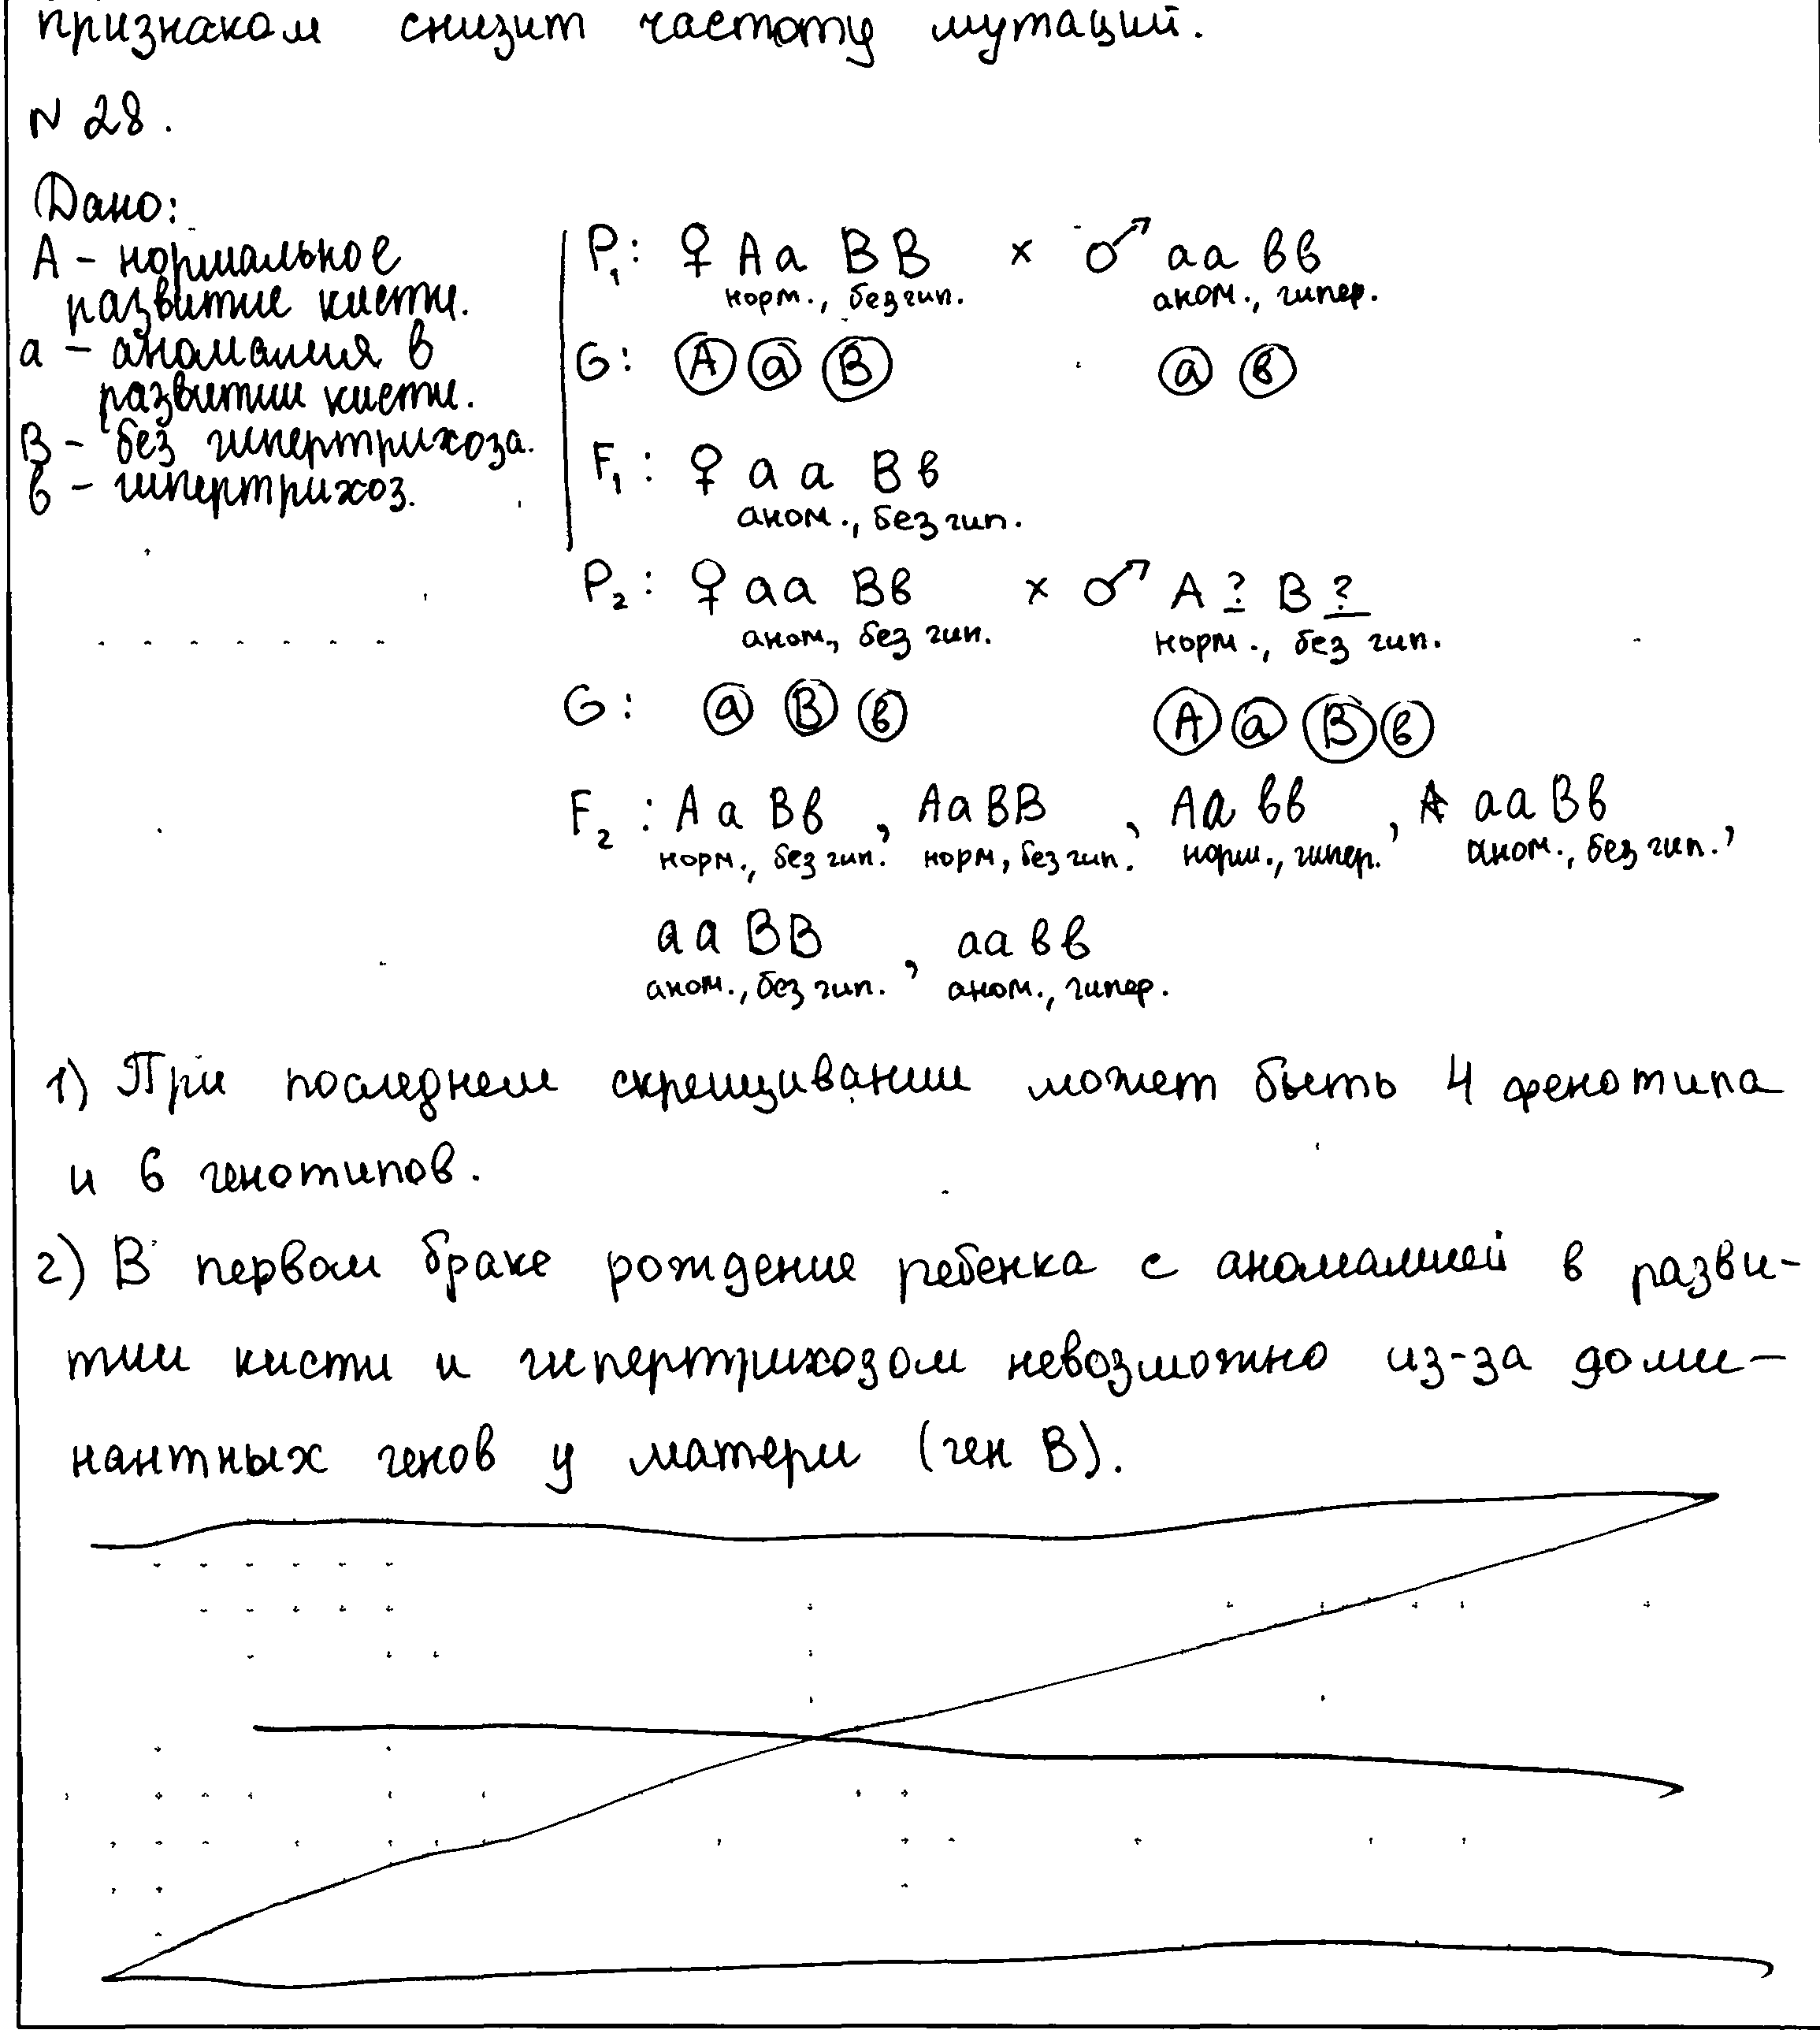 признаком снизит частоту мутаций.
N 28.
Дано:
A - нормальное
развитие кисти.
a - аномалия в
развитии кисти.
B - без гипертрихоза.
в - гипертрихоз.
P1: ♀ Aa BB × ♂ aa вв
норм., без гип. аном., гипер.
G: A a B a в
F1: ♀ aa Bв
аном., без гип.
P2: ♀ aa Bв × ♂ A ? B ?
аном., без гип. норм., без гип.
G: a B в A a B в
F2: Aa Bв, AaBB, Aa вв, aaBв,
норм., без гип. норм, без гип. норм., гипер. аном., без гип.,
aa BB, aa вв
аном., без гип. аном., гипер.
1) При последнем скрещивании может быть 4 фенотипа
и 6 генотипов.
2) В первом браке рождение ребенка с аномалией в разви-
тии кисти и гипертрихозом невозможно из-за доми-
нантных генов у матери (ген B).